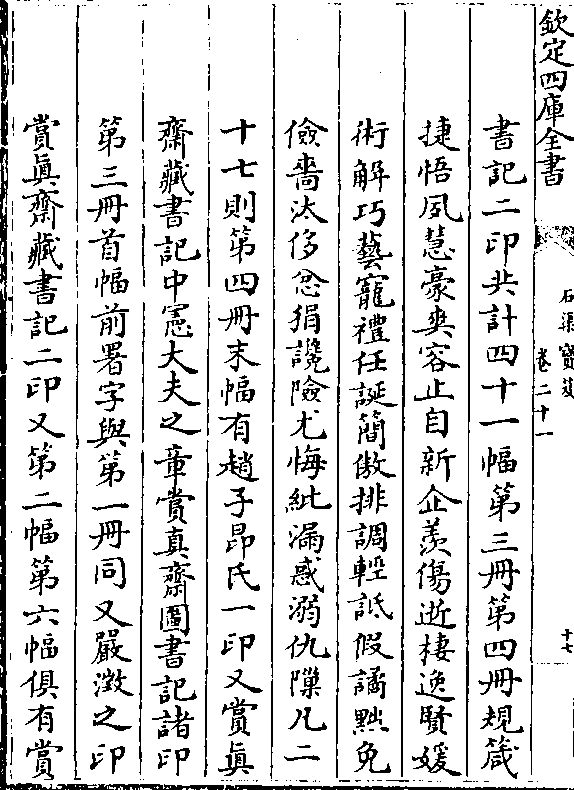 欽定四庫全書
石渠寶笈
卷二十一
十七
書記二印共計四十一幅第三冊第四冊規箴
捷悟夙慧豪爽容止自新企羨傷逝棲逸賢媛
術解巧藝寵禮任誕簡傲排調輕詆假譎黜免
儉嗇汰侈忿狷讒險尤悔紕漏惑溺仇隟凡二
十七則第四冊末幅有趙子昂氏一印又賞真
齋藏書記中憲大夫之章賞真齋圖書記諸印
第三冊首幅前署字與第一冊同又嚴澂之印
賞眞齋藏書記二印又第二幅第六幅俱有賞